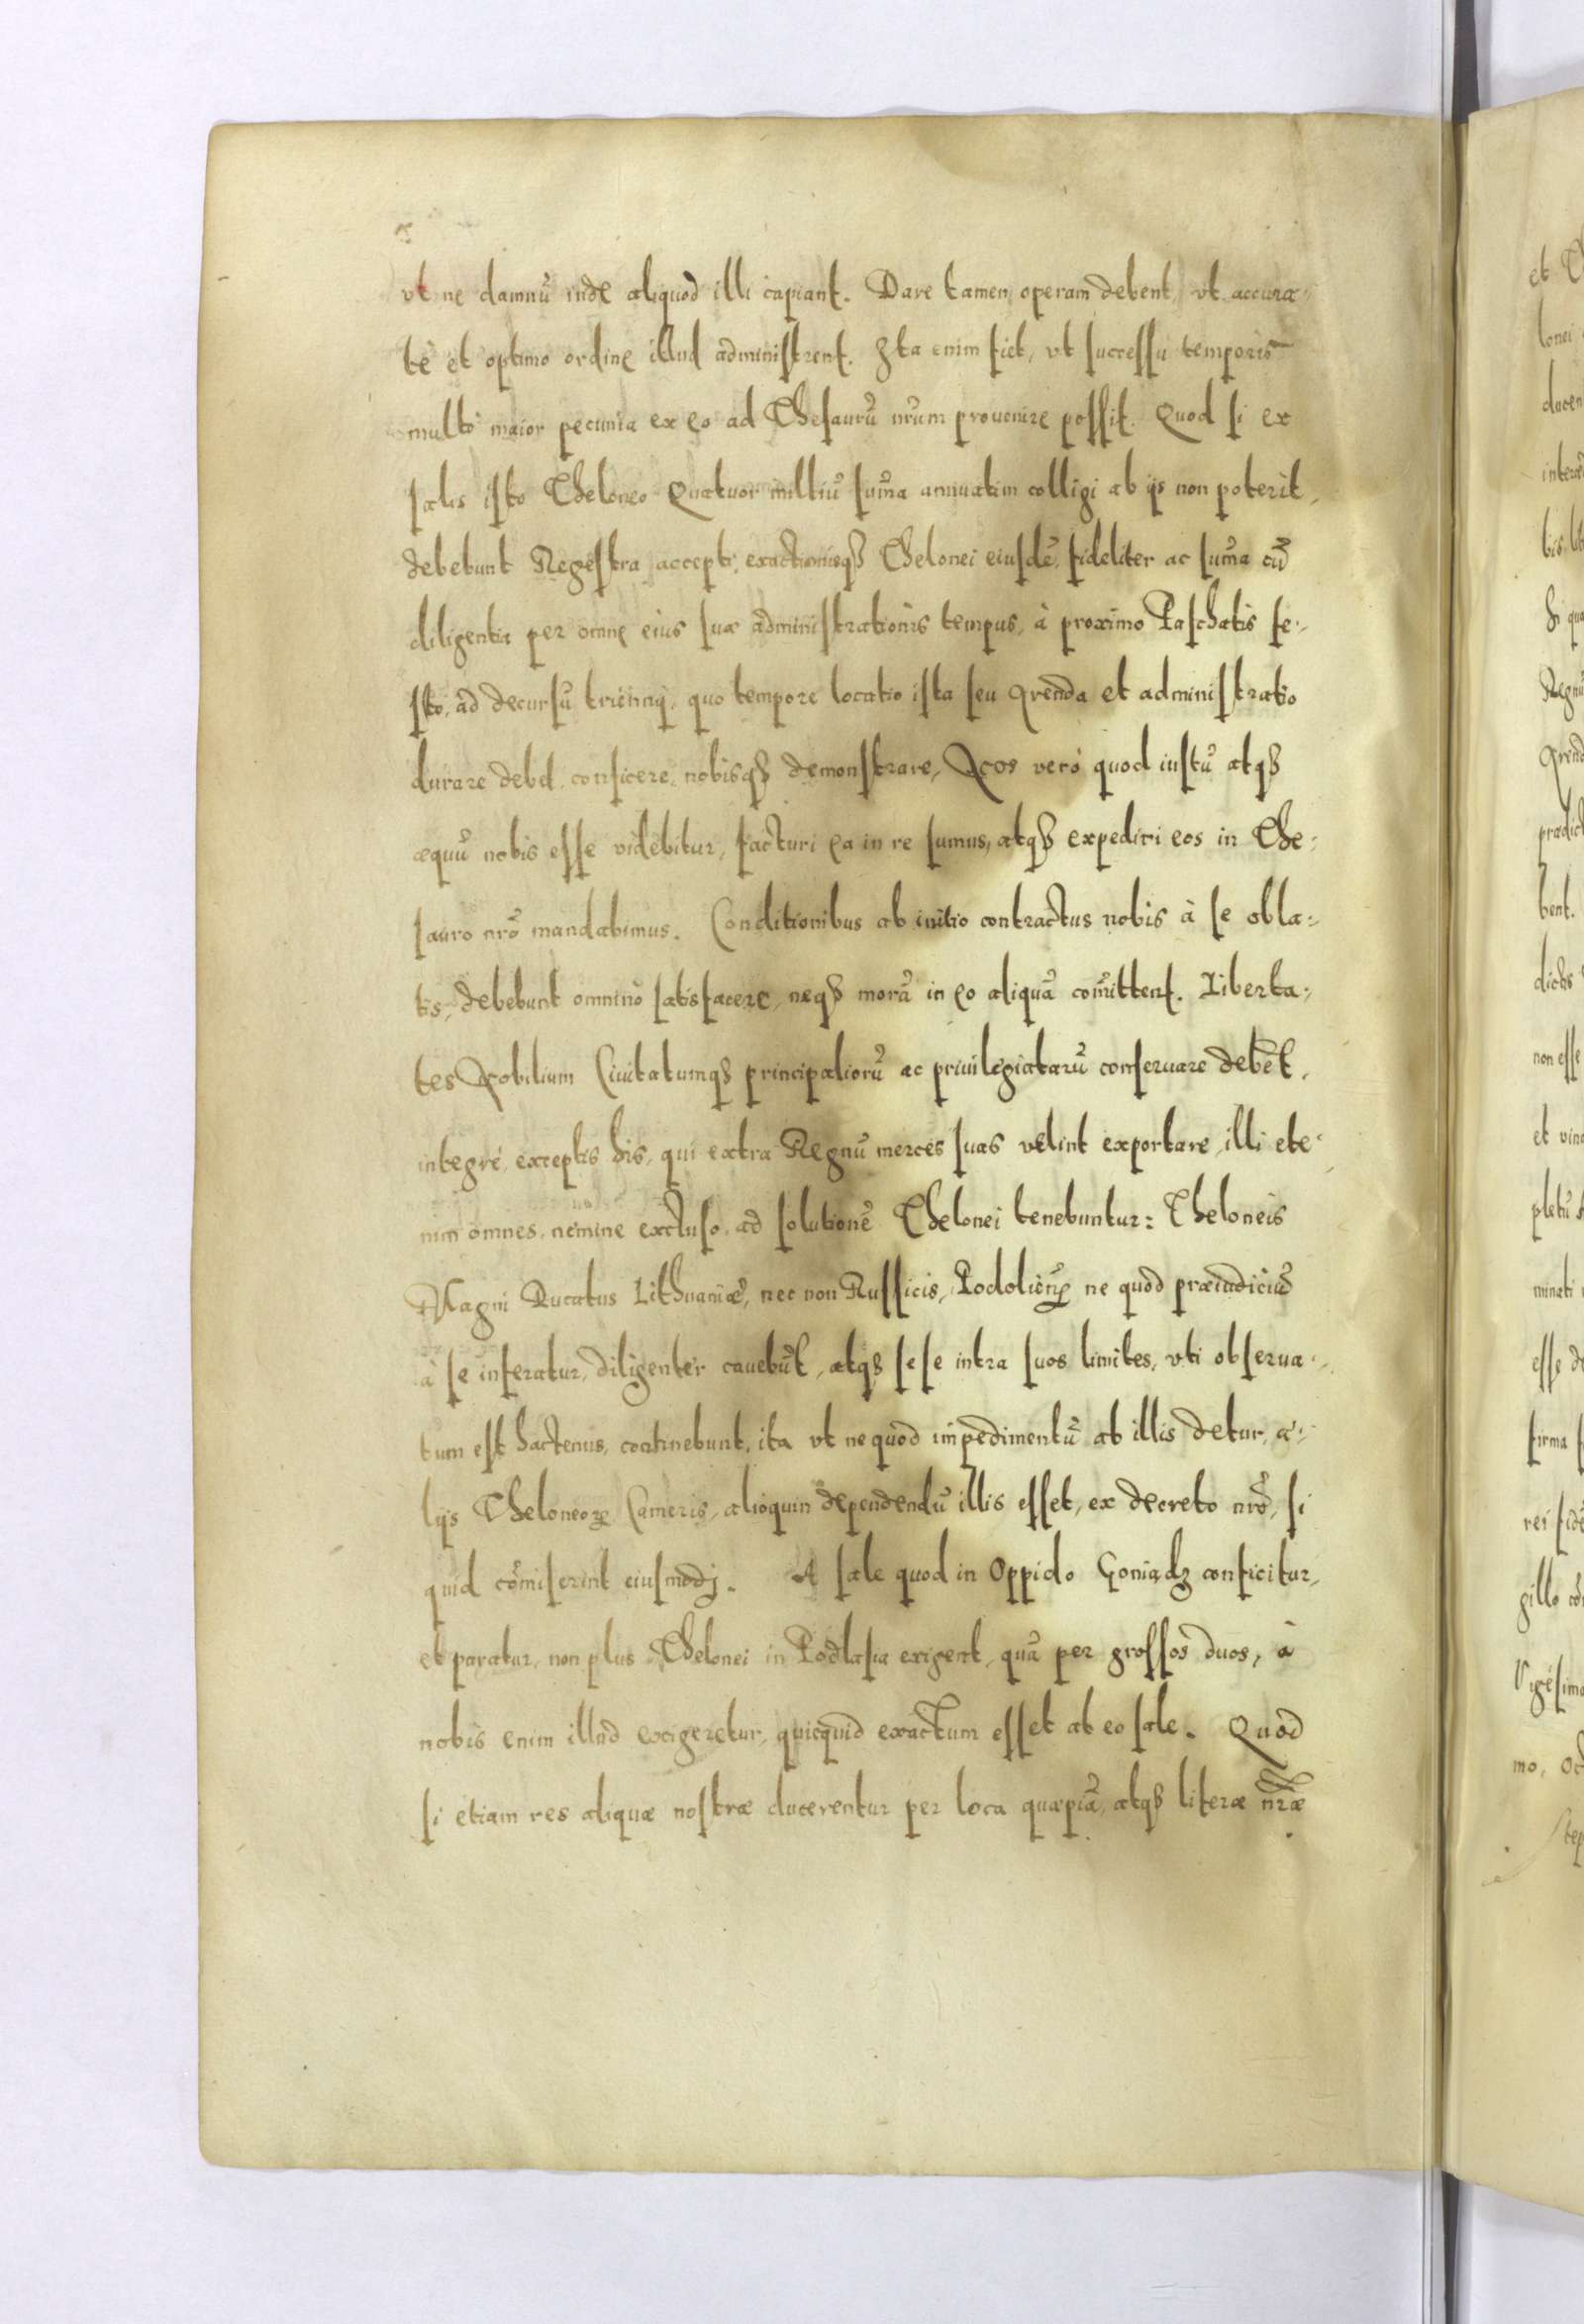 vt ne damnũ inde aliquod illi capiant. Dare tamen operam debent, vt accura⸗
tè et optimo ordine illud administrent. Ita enim fiet, vt successu temporis
multò maior pecunia ex eo ad Thesaurũ nr̃um prouenire possit. Quod si ex
salis isto Theloneo Quatuor milliũ sum̃a annuatim colligi ab ijs non poterit,
debebunt Regestra accepti, exactionisq₃ Thelonei eiusdẽ, fideliter ac sum̃a cũ
diligentia per omne eius suæ administrationis tempus, à proximo Paschatis fe⸗
sto, ad decursũ triennij, quo tempore locatio ista seu Arenda et administratio
durare debet, conficere, nobisq₃ demonstrare, Nos verò quod iustũ atq₃
æquũ nobis esse videbitur, facturi ea in re sumus, atq₃ expediri eos in The⸗
sauro nr̃o mandabimus. Conditionibus ab initio contractus nobis à se obla⸗
tis, debebunt omninò satisfacere, neq₃ morã in eo aliquã com̃ittent. Liberta⸗
tes Nobilium Ciuitatumq₃ principaliorũ ac priuilegiatarũ conseruare debẽt,
integrè, exceptis his, qui extra Regnũ merces suas velint exportare, illi ete⸗
nim omnes, nemine excluso, ad solutionẽ Thelonei tenebuntur: Theloneis
Magni Ducatus Lithuaniæ, nec non Russicis, Podolien̄ ne quod præiudiciũ
à se inferatur, diligenter cauebũt, atq₃ sese intra suos limites, vti obserua⸗
tum est hactenus, continebunt, ita vt ne quod impedimentũ ab illis detur, a⸗
lijs Theloneoꝝ Cameris, alioquin dependendũ illis esset, ex decreto nr̃o, si
quid com̃iserint eiusmodj. A sale quod in Oppido Goniądz conficitur,
et paratur, non plus Thelonei in Podlasia exigent, quã per grossos duos, à
nobis enim illud exigeretur, quicquid exactum esset ab eo sale. Quod
si etiam res aliquæ nostræ ducerentur per loca quæpiã, atq₃ literæ nr̃æ